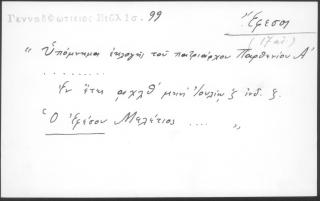 Γενναδ.Φώτιειος Βιβλ ις. 99
Ἔφεσος
(17 αἰ)
“ Ὑπόμνημα ἐκλογῆς τοῦ πατριάρχου Παρθενίου Α΄
........
Ἐν ἔτει αχλθʹ μηνὶ Ἰουλίῳ ξ ἰνδ. ξ.
Ὁ Ἐφέσου Μελέτιος .... ”